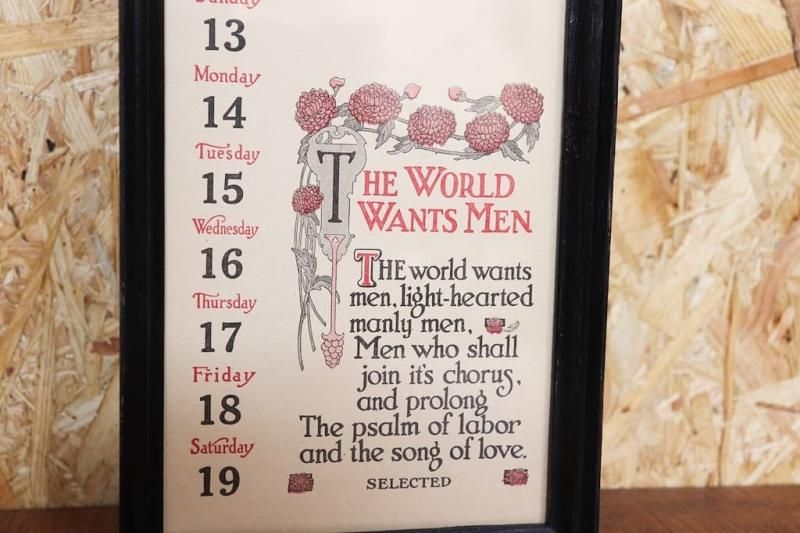 Sunday
13
Monday
14
Tuesday
15
Wednesday
16
Thursday
17
Friday
18
Saturday
19
THE WORLD
WANTS MEN
THE world wants
men, light-hearted
manly men,
Men who shall
join it's chorus,
and prolong
The psalm of labor
and the song of love.
SELECTED